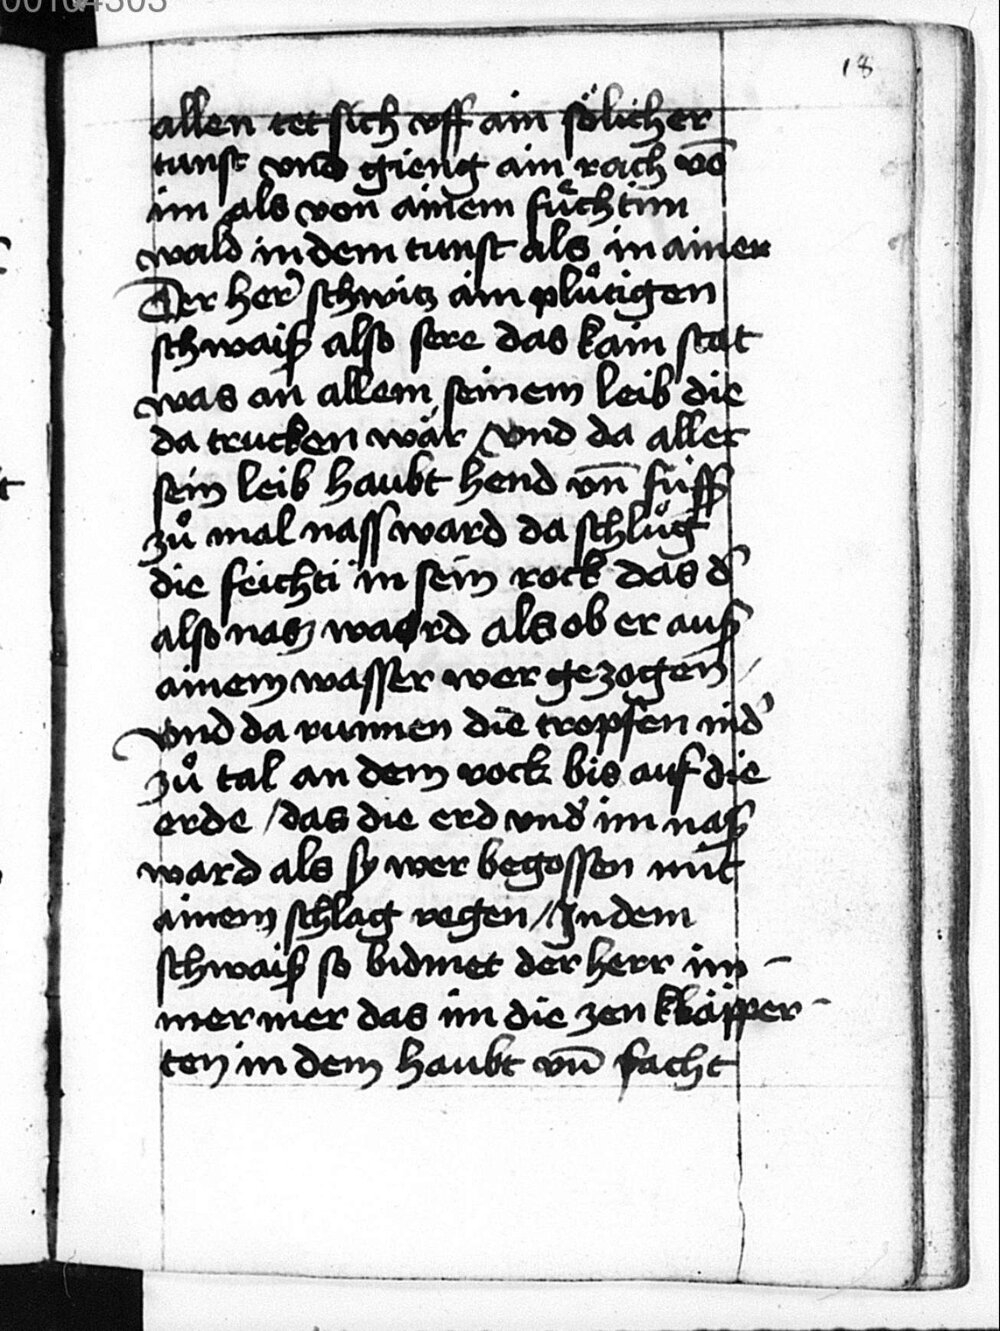 18
allen tet sich vff ain sölicher
tunst vnd gieng ain rach vō
im als von ainem fůchtim
wald in dem tunst als in ainer
Der her̉ schwitz ain plůtigen
schwaiß also sere das kain stat
was an allem seinem leib die
da trucken wär / vnd da aller
sein leib haubt hend vn̄ fuͤss
zů mal nass ward da schlůg
die feichti in sein rock das d̉
also nas waord als ob er auß
ainem wasser wer gezogen /
vnd da runnen die tropfen nid̉
zů tal an dem rock bis auf die
erde / das die erd vnd̉ im naß
ward als sy wer begossen mit
ainem schlag regen / In dem
schwaiß so bidmet der herr im-
mer mer das im die zen klapper-
ten in dem haubt vn̄ facht